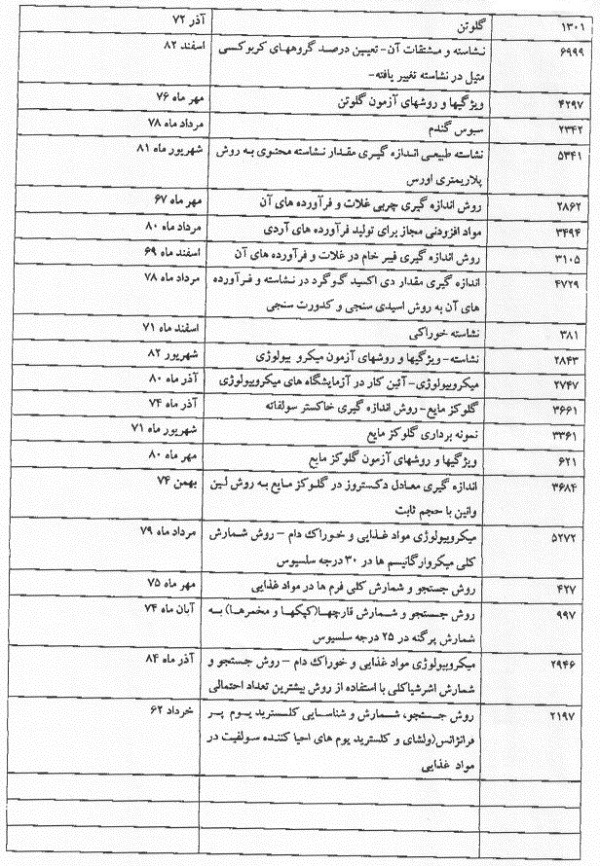 ۱۳۰۱ گلوتن آذر ۷۲
۶۹۹۹ نشاسته و مشتقات آن- تعیین درصد گروههای کربوکسی اسفند ۸۲
متیل در نشاسته تغییر یافته-
۴۲۹۷ ویژگیها و روشهای آزمون گلوتن مهر ماه ۷۶
۲۳۴۲ سبوس گندم مرداد ماه ۷۸
۵۳۴۱ نشاسته طبیعی اندازه گیری مقدار نشاسته محتوی به روش شهریور ماه ۸۱
پلاریمتری اورس
۲۸۶۲ روش اندازه گیری چربی غلات و فرآورده های آن مهر ماه ۶۷
۳۴۹۴ مواد افزودنی مجاز برای تولید فرآورده های آردی مرداد ماه ۸۰
۳۱۰۵ روش اندازه گیری فیبر خام در غلات و فرآورده های آن اسفند ماه ۶۹
۴۷۲۹ اندازه گیری مقدار دی اکسید گوگرد در نشاسته و فرآورده مرداد ماه ۷۸
های آن به روش اسیدی سنجی و کدورت سنجی
۳۸۱ نشاسته خوراکی اسفند ماه ۷۱
۲۸۴۳ نشاسته- ویژگیها و روشهای آزمون میکرو بیولوژی شهریور ۸۲
۲۷۴۷ میکروبیولوژی- آئین کار در آزمایشگاه های میکروبیولوژی آذر ماه ۸۰
۳۶۶۱ گلوکز مایع- روش اندازه گیری خاکستر سولفاته آذر ماه ۷۴
۳۳۶۱ نمونه برداری گلوکز مایع شهریور ماه ۷۱
۶۲۱ ویژگیها و روشهای آزمون گلوکز مایع مهر ماه ۸۰
۳۶۸۴ اندازه گیری معادل دکستروز در گلوکز مایع به روش لین بهمن ۷۴
واتین با حجم ثابت
۵۲۷۲ میکروبیولوژی مواد غذایی و خوراک دام – روش شمارش مرداد ماه ۷۹
کلی میکروارگانیسم ها در ۳۰ درجه سلسیوس
۴۲۷ روش جستجو و شمارش کلی فرم ها در مواد غذایی مهر ماه ۷۵
۹۹۷ روش جستجو و شمارش قارچها(کپکها و مخمرها) به آبان ماه ۷۴
شمارش پرگنه در ۲۵ درجه سلسیوس
۲۹۴۶ میکروبیولوژی مواد غذایی و خوراک دام – روش جستجو و آذر ماه ۸۴
شمارش اشرشیاکلی با استفاده از روش بیشترین تعداد احتمالی
۲۱۹۷ روش جستجو، شمارش و شناسایی کلسترید یوم پر خرداد ۶۲
فرانژانس(ولشای و کلسترید یوم های احیا کننده سولفیت در
مواد غذایی